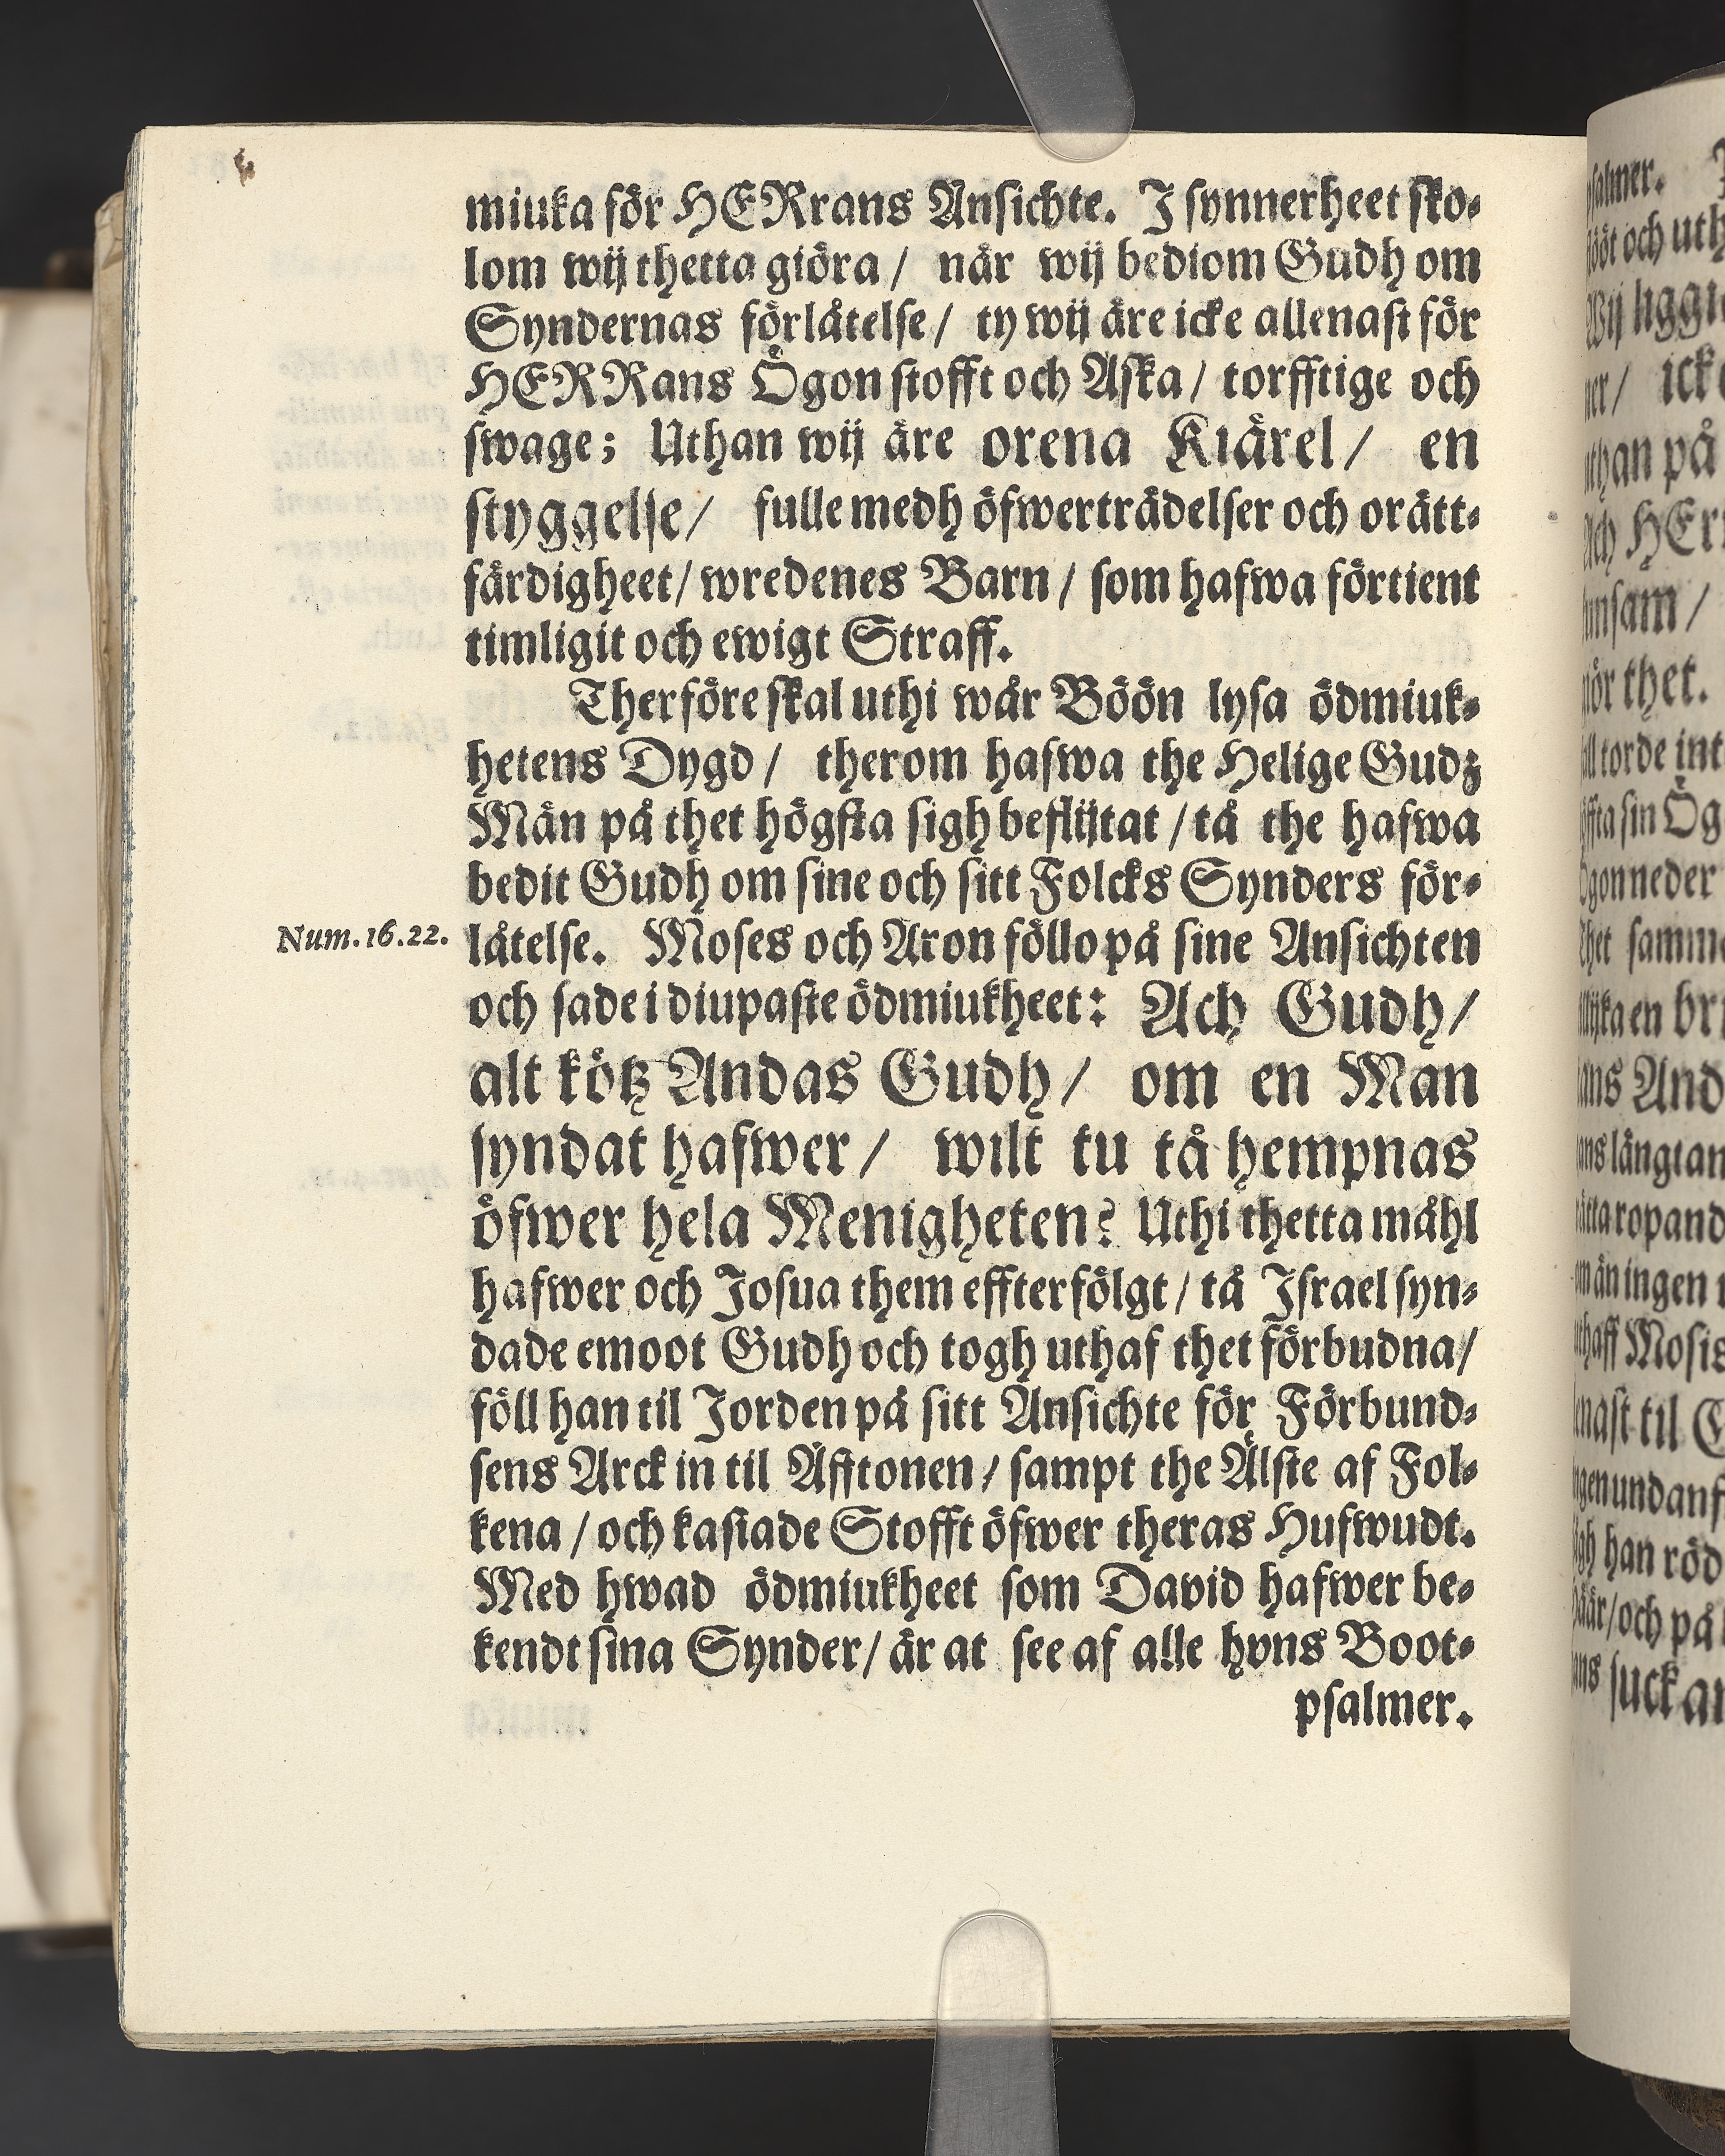 miuka för HERrans Ansichte. I synnerheet sko-
lom wij thetta giöra / når wij bediom Gudh om
Syndernas förlåtelse / ty wij äre icke allenast för
HERRans Ögon stofft och Aska / torfftige och
swage; Uthan wij äre orena Kiärel / en
styggelse / fulle medh öfwerträdelser och orätt-
färdigheet / wredenes Barn / som hafwa förtient
timligit och ewigt Straff.
Therföre skal uthi wår Böön lysa ödmiuk-
hetens Dygd / therom hafwa the Helige Gudz
Män på thet högsta sigh beflijtat / tå the hafwa
bedit Gudh om sine och sitt Folcks Synders för-
Num. 16. 22.
låtelse. Moses och Aron föllo på sine Ansichten
och sade i diupaste ödmiukheet: Ach Gudh /
alt kötz Andas Gudh / om en Man
syndat hafwer / wilt tu tå hempnas
öfwer hela Menigheten? Uthi thetta måhl
hafwer och Josua them effterfölgt / tå Israel syn-
dade emoot Gudh och togh uthaf thet förbudna /
föll han til Jorden på sitt Ansichte för Förbund-
sens Arck in til Äfftonen / sampt the Älste af Fol-
kena / och kastade Stofft öfwer theras Hufwudt.
Med hwad ödmiukheet som David hafwer be-
kendt sina Synder / är at see af alle hons Boot-
psalmer.